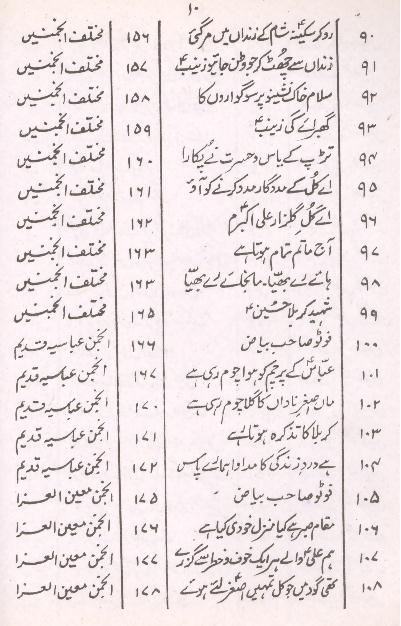 ۱۰
۹۰ رو کر سکینہؑ شام کے زنداں میں مر گئی ۱۵۶ مختلف انجمنیں
۹۱ زنداں سے چھٹ کر جو وطن جا تیو زینبؑ ۱۵۷ مختلف انجمنیں
۹۲ سلام خاک نشینو پر سوگواروں کا ۱۵۸ مختلف انجمنیں
۹۳ گھبرائے گی زینبؑ ۱۵۹ مختلف انجمنیں
۹۴ تڑپ کے یاس و حسرت نے پکارا ۱۶۰ مختلف انجمنیں
۹۵ اے کُل کے مددگار مدد کرنے کو آؤ ۱۶۱ مختلف انجمنیں
۹۶ اے گل گلزار علی اکبرؑم ۱۶۲ مختلف انجمنیں
۹۷ آج ماتم تمام ہوتا ہے ۱۶۳ مختلف انجمنیں
۹۸ ہائے رے بھیّا۔ مانجائے رے بھیّا ۱۶۳ مختلف انجمنیں
۹۹ شہید کربلا حسینؑ ۱۶۵ مختلف انجمنیں
۱۰۰ فوٹو صاحب بیاض ۱۶۶ انجمن عباسیہ قدیم
۱۰۱ عباسؑ کے پرچم کو ہوا چوم رہی ہے ۱۶۷ انجمن عباسیہ قدیم
۱۰۲ ماں صغر ناداں کا گلا چوم رہی ہے ۱۷۰ انجمن عباسیہ قدیم
۱۰۳ کربلا کا تذکرہ ہوتا ہے ۱۷۱ انجمن عباسیہ قدیم
۱۰۴ ہے درد زندگی کا مداوا ہمارے پاس ۱۷۲ انجمن عباسیہ قدیم
۱۰۵ فوٹو صاحب بیاض ۱۷۵ انجمن معین العزا
۱۰۶ مقام صبر ہے کیا منزل خودی کیا ہے ۱۷۶ انجمن معین العزا
۱۰۷ ہم علیؑ والے ہر ایک خوف و خطر سے گزرے ۱۷۷ انجمن معین العزا
۱۰۸ تھی گود میں جو کل تمہیں اصغرؑ لئے ہوئے ۱۷۸ انجمن معین العزا